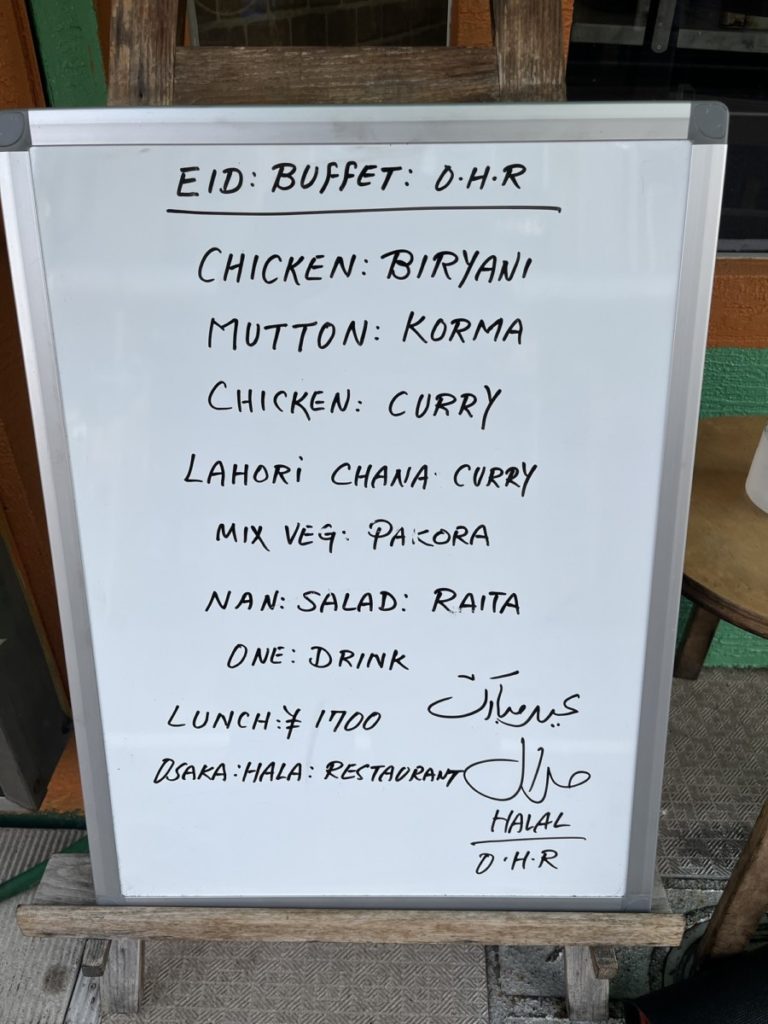 EID: BUFFET: O.H.R
CHICKEN: BIRYANI
MUTTON: KORMA
CHICKEN: CURRY
LAHORI CHANA CURRY
MIX VEG: PAKORA
NAN: SALAD: RAITA
ONE: DRINK
LUNCH:¥ 1700
عید مبارک
OSAKA:HALA: RESTAURANT
حلال
HALAL
O.H.R